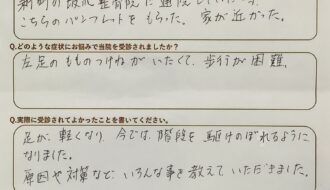 こちらのパンフレットをもらった。 家が近かった。
Q.どのような症状にお悩みで当院を受診されましたか?
左足の もものつけねが いたくて、 歩行が 困難、
Q.実際に受診されてよかったことを書いてください。
足が、軽くなり、今では、階段を 駆けのぼれるように
なりました。
原因や対策など いろんな事を教えて いただきました。